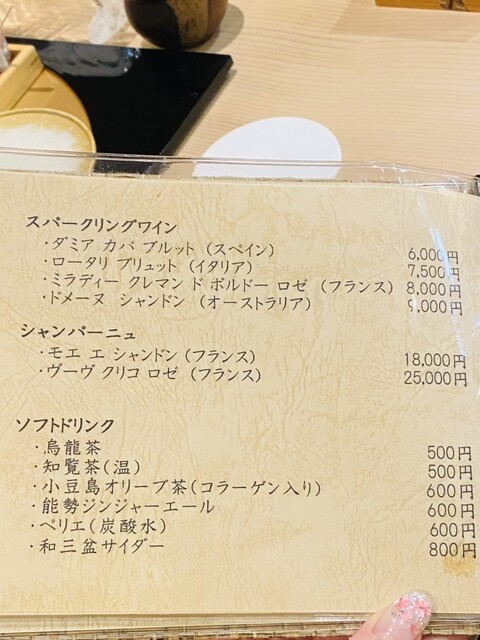 スパークリングワイン
・ダミア カバ ブルット (スペイン) 6,000円
・ロータリ ブリュット (イタリア) 7,500円
・ミラディー クレマン ド ボルドー ロゼ (フランス) 8,000円
・ドメーヌ シャンドン (オーストラリア) 9,000円
シャンパーニュ
・モエ エ シャンドン (フランス) 18,000円
・ヴーヴ クリコ ロゼ (フランス) 25,000円
ソフトドリンク
・烏龍茶 500円
・知覧茶(温) 500円
・小豆島オリーブ茶(コラーゲン入り) 600円
・能勢ジンジャーエール 600円
・ペリエ(炭酸水) 600円
・和三盆サイダー 800円